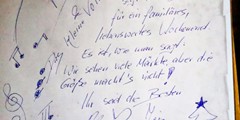 für ein familiäres,
liebenswertes Wochenend
Es ist, wie man sagt:
Wir sehen viele Märkte aber die
Größe macht's nicht!
Ihr seid die Besten